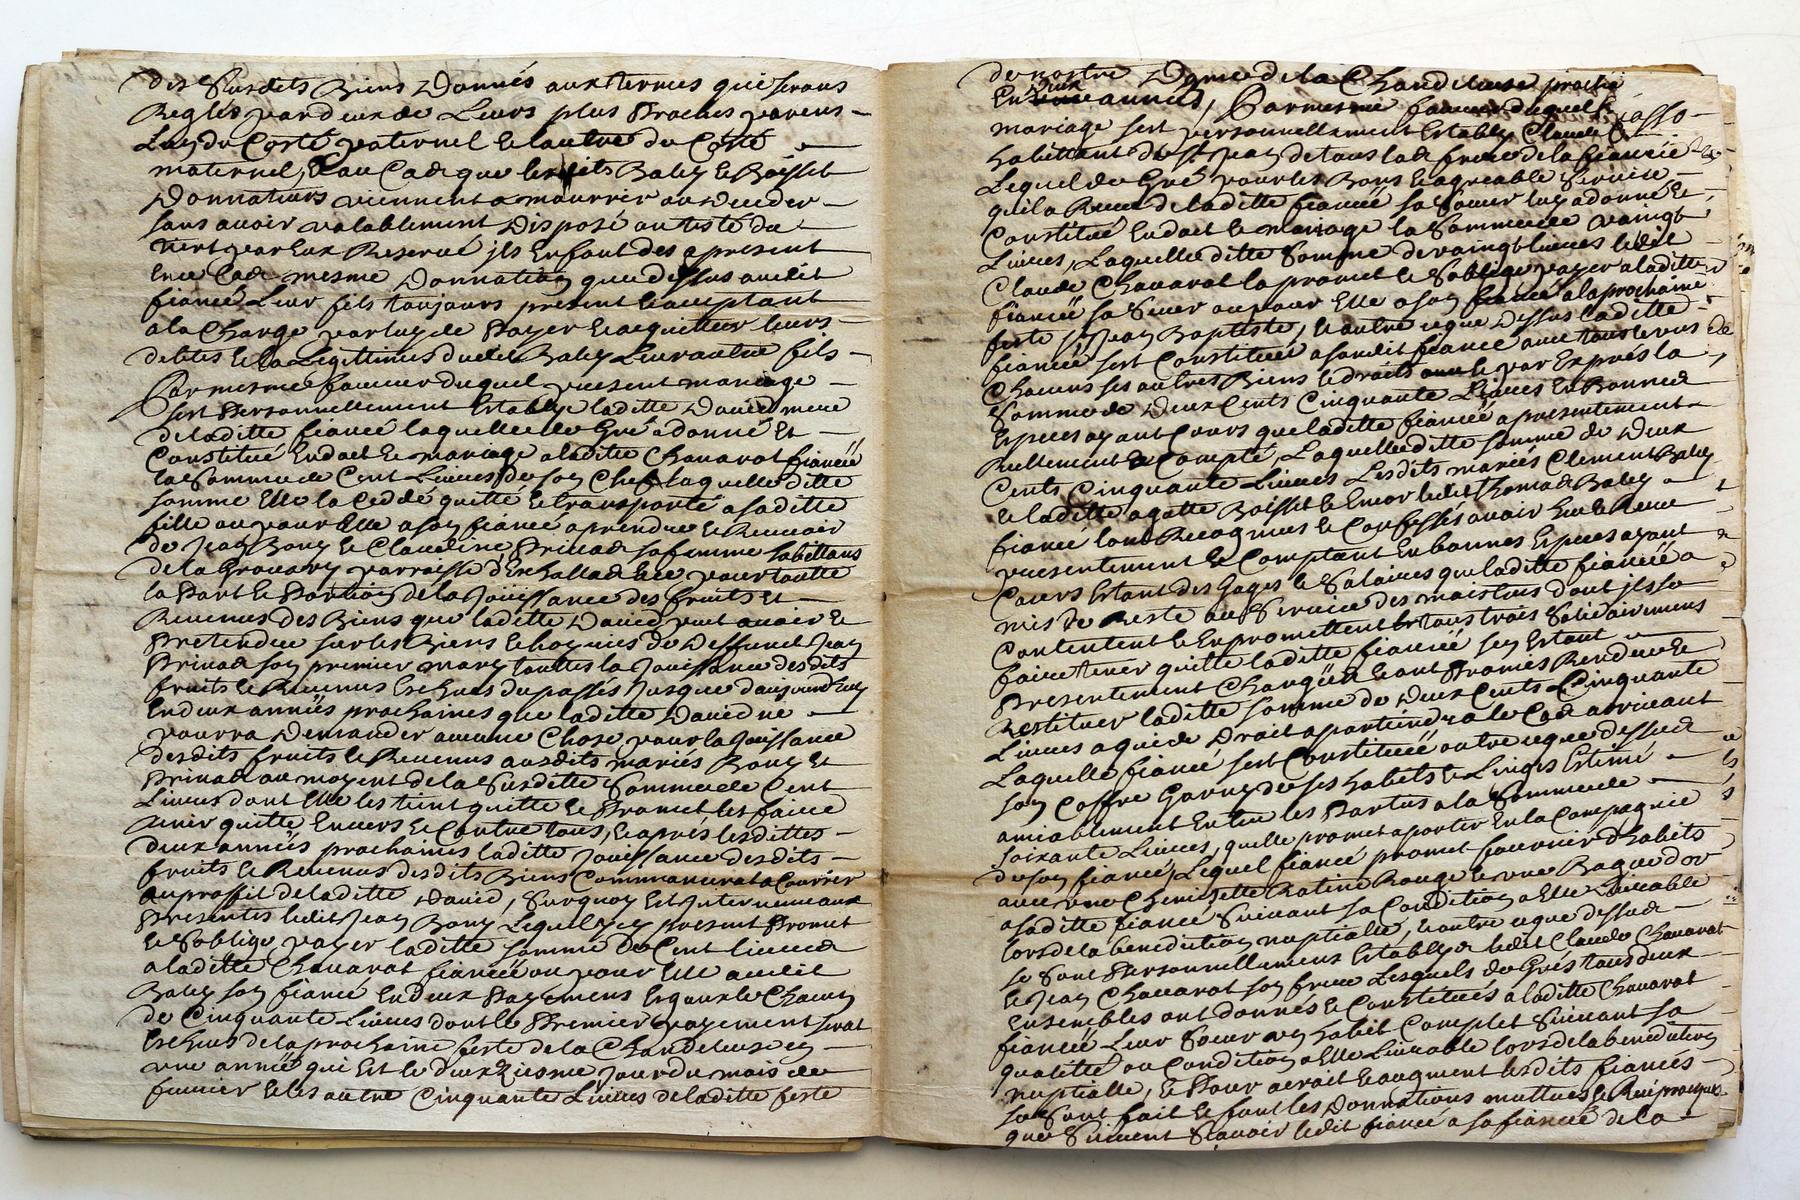 des Susdits Biens Donnés aux termes qui serons
Reglés par deux de Leurs plus Proches parens
Lun du Costé paternel et lautre du Costé
maternel, Et au Cas que lesdits Baley et Boisset
Donnateurs viennent a mourrir ou Deceder
sans avoir valablement Disposé ou testé du
par Eux Reservé ils En font des a present
En ce Cas mesme Donnation que dessus audit
fiancé Leur fils toujours present et acceptant
a la Charge par luy de Payer et acquitter leurs
debtes et la Legittime dudit Baley Leur autre fils
Par mesme faveur duquel present mariage
sest Personnellement Establye laditte David mere
de laditte fiancé laquelle de Gré a donné Et
Constitué En dot et mariage a laditte Chavarot fiancéé
la Somme de Cent Livres de son Chef laquelle ditte
somme Elle la Cedde quitte et transporté a saditte
fille ou pour Elle a son fiancé a prendre et Recevoir
de Jean Bony et Claudine Prinad sa femme habittans
de la parroisse d'Eschallad et ce pour toutte
la Part et Portion de la Jouissance des fruits Et
Revenus des Biens que laditte David peut avoir et
Pretendre sur les Biens et hoyries de Deffunct Jean
Prinad son premier mary touttes la Jouissance desdits
fruits et Revenus Escheus du passés Jusque daujourdhuy
En deux annéés prochaines que laditte David ne
pourra Demander aucune Chose pour la Jouissance
desdits fruits et Revenus ausdits mariés Bony Et
Prinad au moyent de la Susditte Somme de Cent
Livres dont Elle les tient quitte et Promet les faire
tenir quitte Envers et Contre tous, Et aprés lesdittes
deux annéés prochaines laditte Jouissance desdits
fruits et Revenus desdits Biens Commancera a Courrir
au proffit de laditte David, Surquoy Est Intervenu aux
Presentes ledit Jean Bony Lequel icy present Promet
et Soblige payer laditte somme de Cent livres
a laditte Chavarot fiancéé ou pour Elle audit
Baley son fiancé En deux Payemens Esgaux de Chacun
de Cinquante Livres dont le Premier payement serat
Escheus de la prochaine feste de la Chandeleuse en
une annéé qui Est le Deuxziesme Jour du mois de
fevrier Et les autre Cinquante Livres de laditte feste
de nostre Dame de la Chandeleuse proche
En deux annéés, Par mesme faveur duquel
mariage sest personnellement Estably Claude
habittant de St Jean de tous las frere de la fiancéé
Lequel de Gré pour les Bons et agreable Service
quil a Receu de laditte fiancéé sa Soeur luy a donné Et
Constitué En dot et mariage la Somme de vaingt
Livres, Laquelle ditte Somme de vaingt livres ledit
Claude Chavarot la promet et Soblige payer a laditte
fiancéé sa Soeur ou pour Elle a son fiancé a la prochaine
feste St Jean Baptiste, Et outre ceque Dessus laditte
fiancéé sest Constituéé a sondit fiancé avec tous et uns
Chacuns ses autres Biens et droits et par Exprés la
Somme de Deux Cents Cinquante Livres En Bonnes
Especes ayant Cours que laditte fiancéé a presentement
Reellement et Compté, Laquelle ditte somme de Deux
Cents Cinquante Livres Lesdits mariés Clement Baley
et laditte agatte Boisset et Encor ledit Thomas Baley
fiancé lont Recognus et Confessés avoir Heu et Receu
presentement et Comptant En bonnes Especes ayant
Cours Estant des Gages et Salaires que laditte fiancéé a
mis de Reste au Service des maistres dont ils se
Contentent et En promettent tous trois Solidairement
faire tenir quitte laditte fiancéé sen Estant
Presentement Chargés et ont Promis Rendre et
Restituer laditte somme de Deux Cents Cinquante
Livres a qui de Droit apartiendra le Cas arrivant
Laquelle fiancé sest Constituéé outre ceque dessus
son Coffre Garny de ses habits et Linges Estimé
amiablement Entre les Parties a la Somme de
soixante Livres, quelle promet aporter En la Compagnie
de son fiancé, Lequel fiancé promet fournir dhabits
avec une Chemisette Ratine Rouge et une Bague dor
a saditte fiancéé Suivant sa Condition a Elle Livrable
lors de la benediction nuptialle, Et outre ceque dessus
se Sont Personnellement Establys ledit Claude Chavarot
et Jean Chavarot son frere Lesquels de Grés tous deux
Ensembles ont donnés et Constitués a laditte Chavarot
fiancéé Leur Soeur un habit Complet Suivant sa
qualitté ou Condition a Elle Livrable lors de la benediction
nuptialle, Et Pour accroit et augment lesdits fiancés
se Sont fait et font les Donnations mutues et Reciproques
que Suivent Scavoir ledit fiancé a sa fiancéé de la